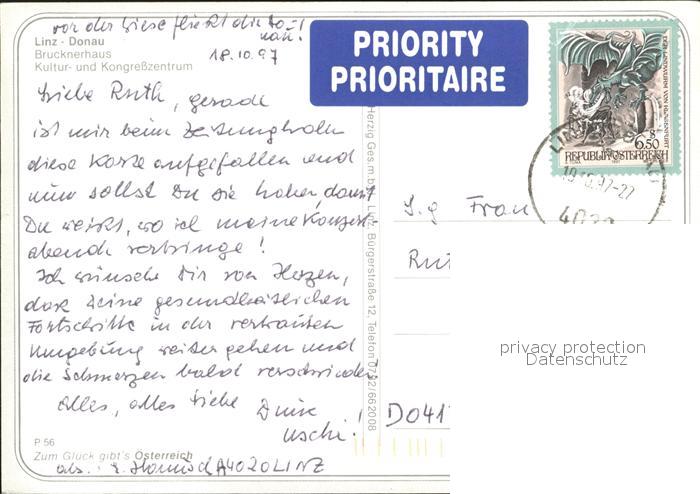 vor der Wiese fließt die Do-
nau!
Linz - Donau
Brucknerhaus
Kultur- und Kongreßzentrum
18.10.97
PRIORITY
PRIORITAIRE
DER LINDWURM VON KLAGENFURT
S 6.50
REPUBLIK ÖSTERREICH
Liebe Ruth, gerade
ist mir beim Zeitungholen
diese Karte aufgefallen und
nun sollst Du sie haben, damit
Du weißt, wo ich meine Konzert-
abende verbringe!
Ich wünsche Dir von Herzen,
dass Deine gesundheitlichen
Fortschritte in der vertrauten
Umgebung weiter gehen und
die Schmerzen bald verschwinden!
Alles, alles Liebe Deine
Uschi!
P 56
Zum Glück gibt's Österreich
abs.: A4020 LINZ
Herzig Ges.m.b. Linz, Bürgerstraße 12, Telefon 0732/662008
S.g Frau
Rut
D041
4020
privacy protection
Datenschutz